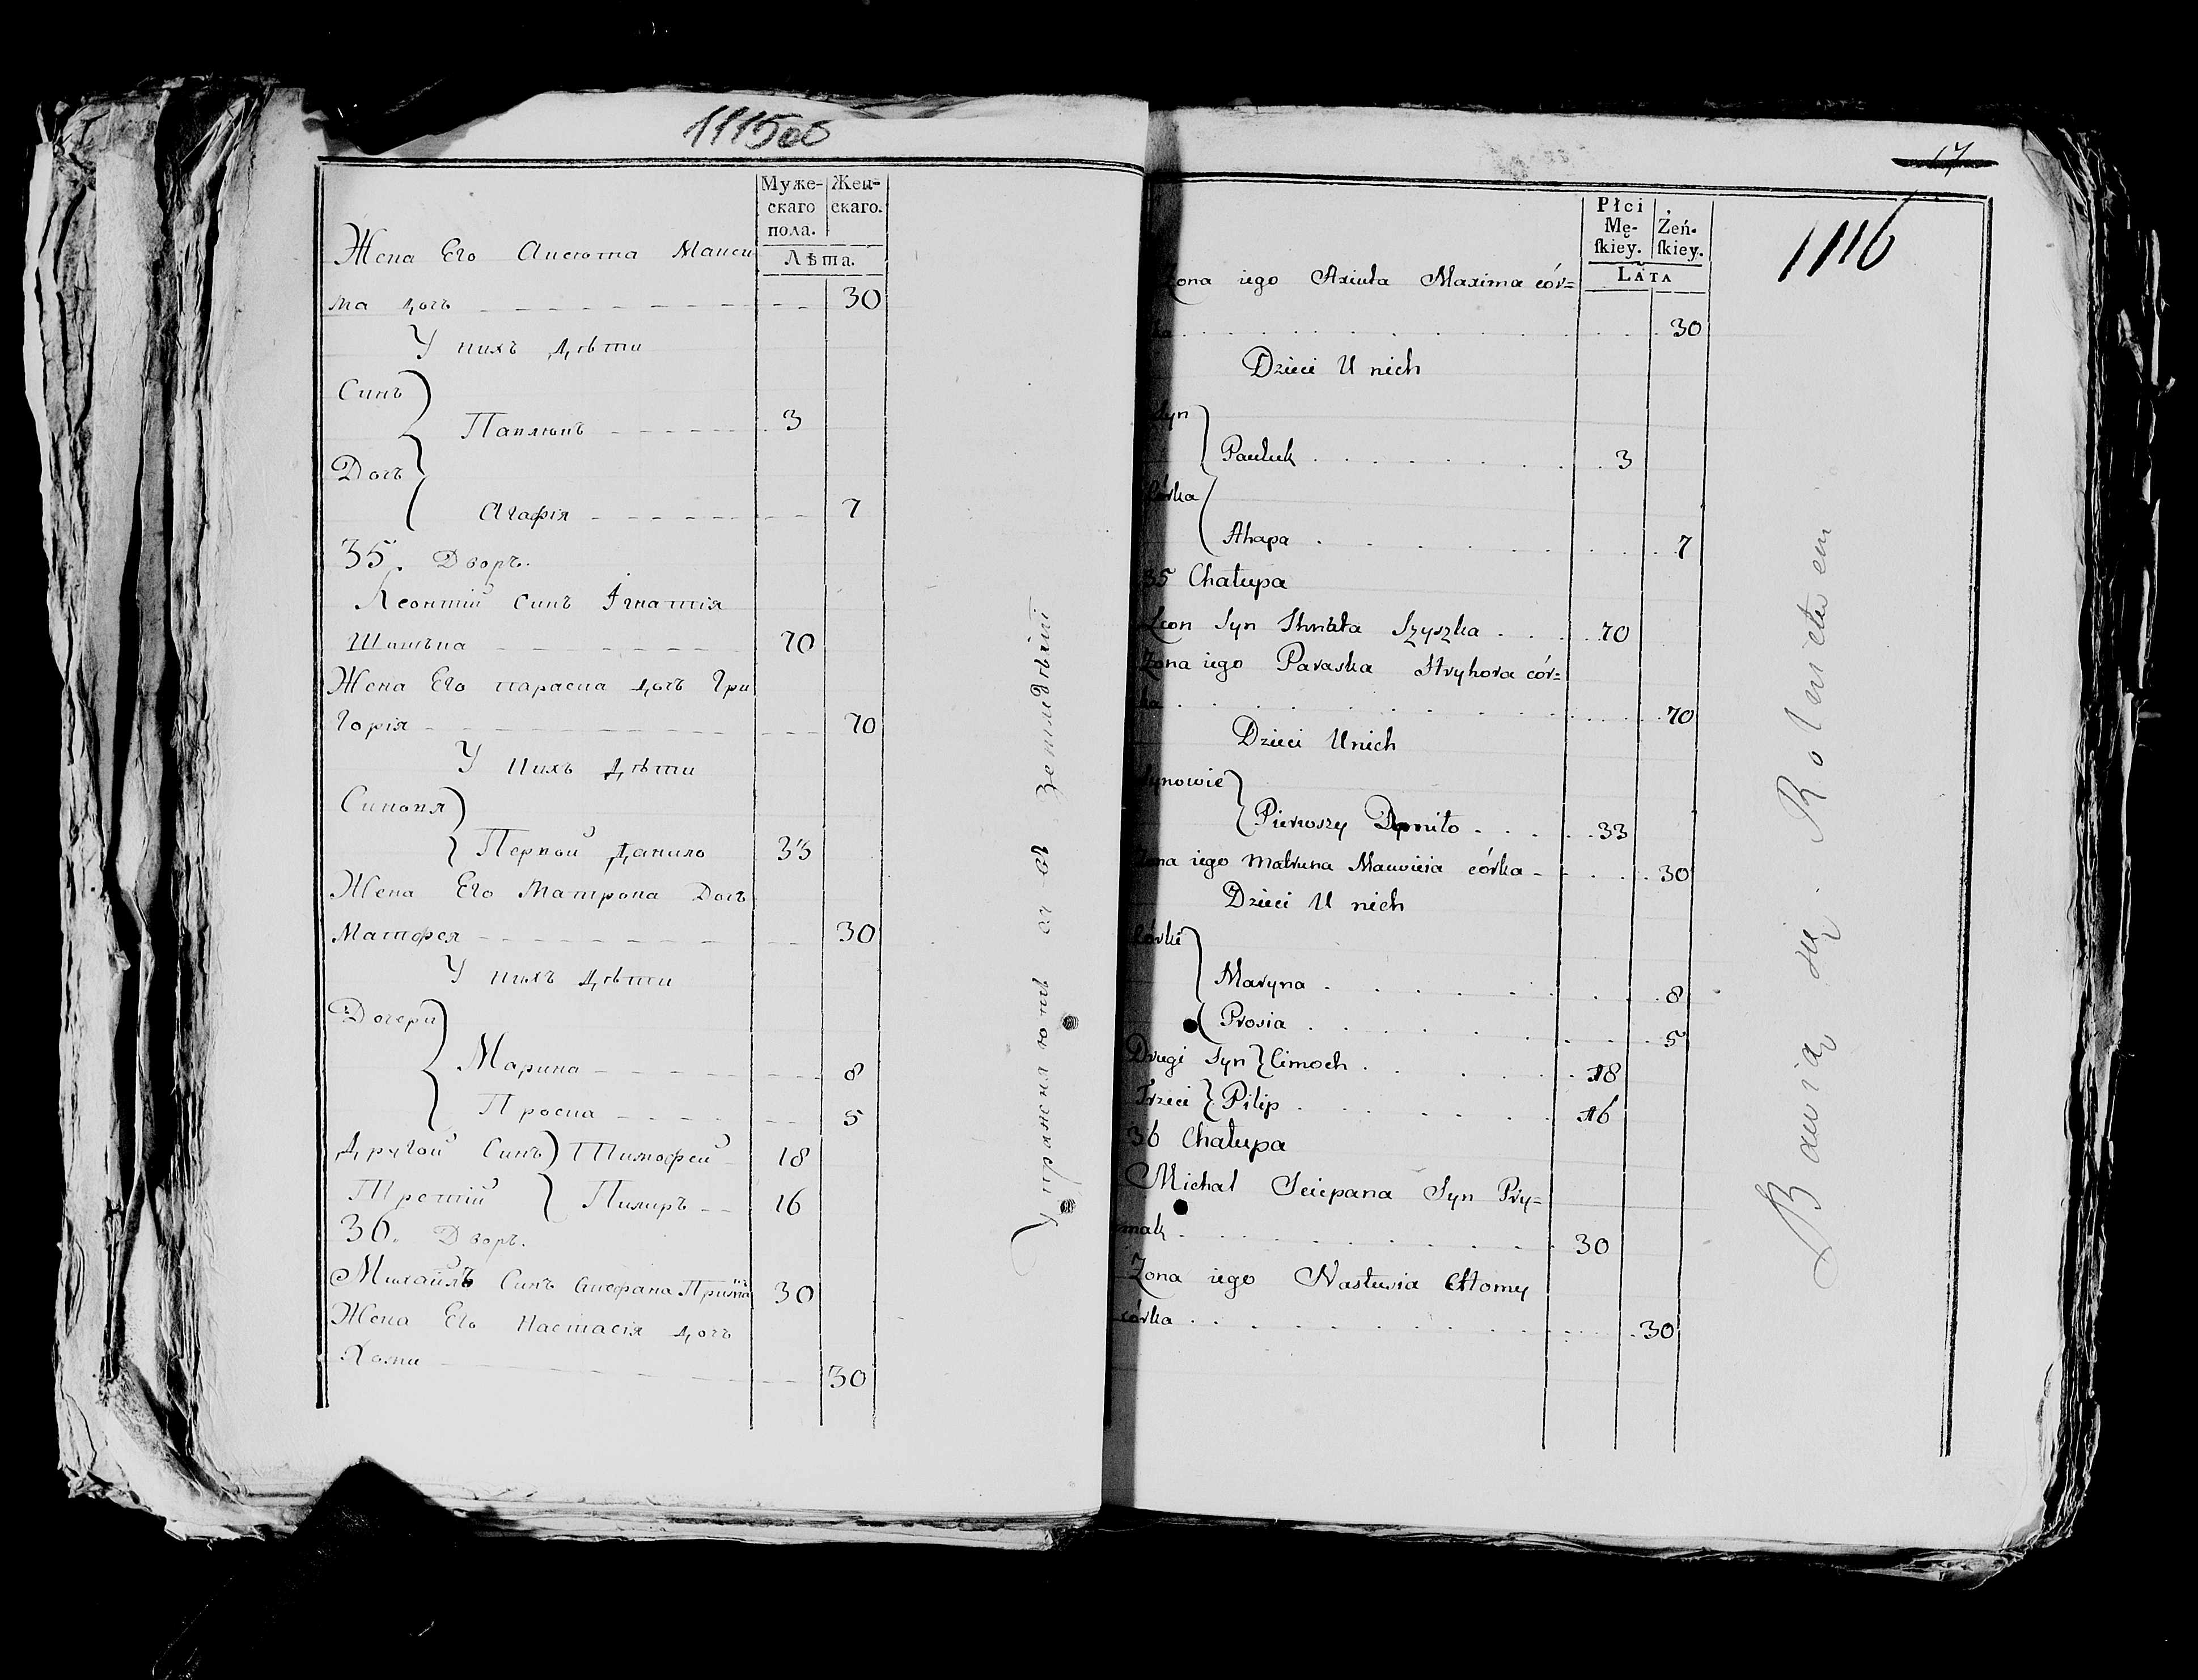 1115об
Муже-
скаго
пола.
Жен-
скаго.
Лѣта.
Жена Его Аксюта Макси
ма доч 30
У нихъ Дѣти
Синъ
Павлюкъ 3
Дочъ
Агафія 7
35. Дворъ.
Леонтій синъ Ігнатія
Шишъка 70
Жена Его параска дочъ Гри
горія 70
У Нихъ Дѣти
Синовя
Первой Данило 33
Жена Его Матрона Дочъ
Матфея 30
У нихъ Дѣти
Дочери
Марина 8
Проска 5
Другой Синъ Тимофей 18
Третій Пилипъ 16
36. Дворъ.
Михайлъ Синъ Стефана Примак 30
Жена Его Настасія дочъ
Хоми 30
Упражняютъ ся въ Земледѣлїї
17
1116
Płci
Mę-
ſkiey.
Żeń-
ſkiey.
Lata
Żona iego Axiuta Maxima cór=
ka 30
Dzieci U nich
Syn
Pauluk 3
Córka
Ahapa 7
35 Chałupa
Leon Syn Ihnata Szyszka 70
Żona iego Paraska Hryhora cór=
ka 70
Dzieci U nich
Synowie
Pierwszy Daniło 33
Żona iego Matruna Mauvieia córka 30
Dzieci U nich
Córki
Maryna 8
Prosia 5
Drugi Syn Cimoch 18
Trzeci Pilip 16
36 Chałupa
Michał Sciepana Syn Pry=
mak 30
Żona iego Nastusia Chomy
córka 30
Bawią się Rolnictwem